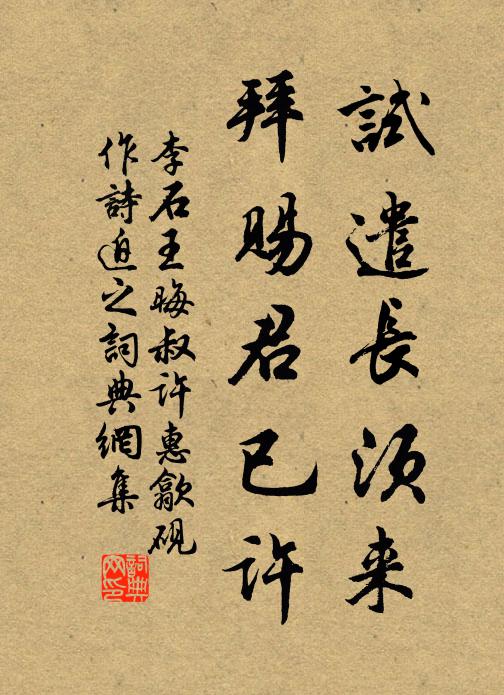 試遣長須来
拜賜君已許
李石王晦叔許惠歙硯
作詩迫之詞典網集
詞典网印